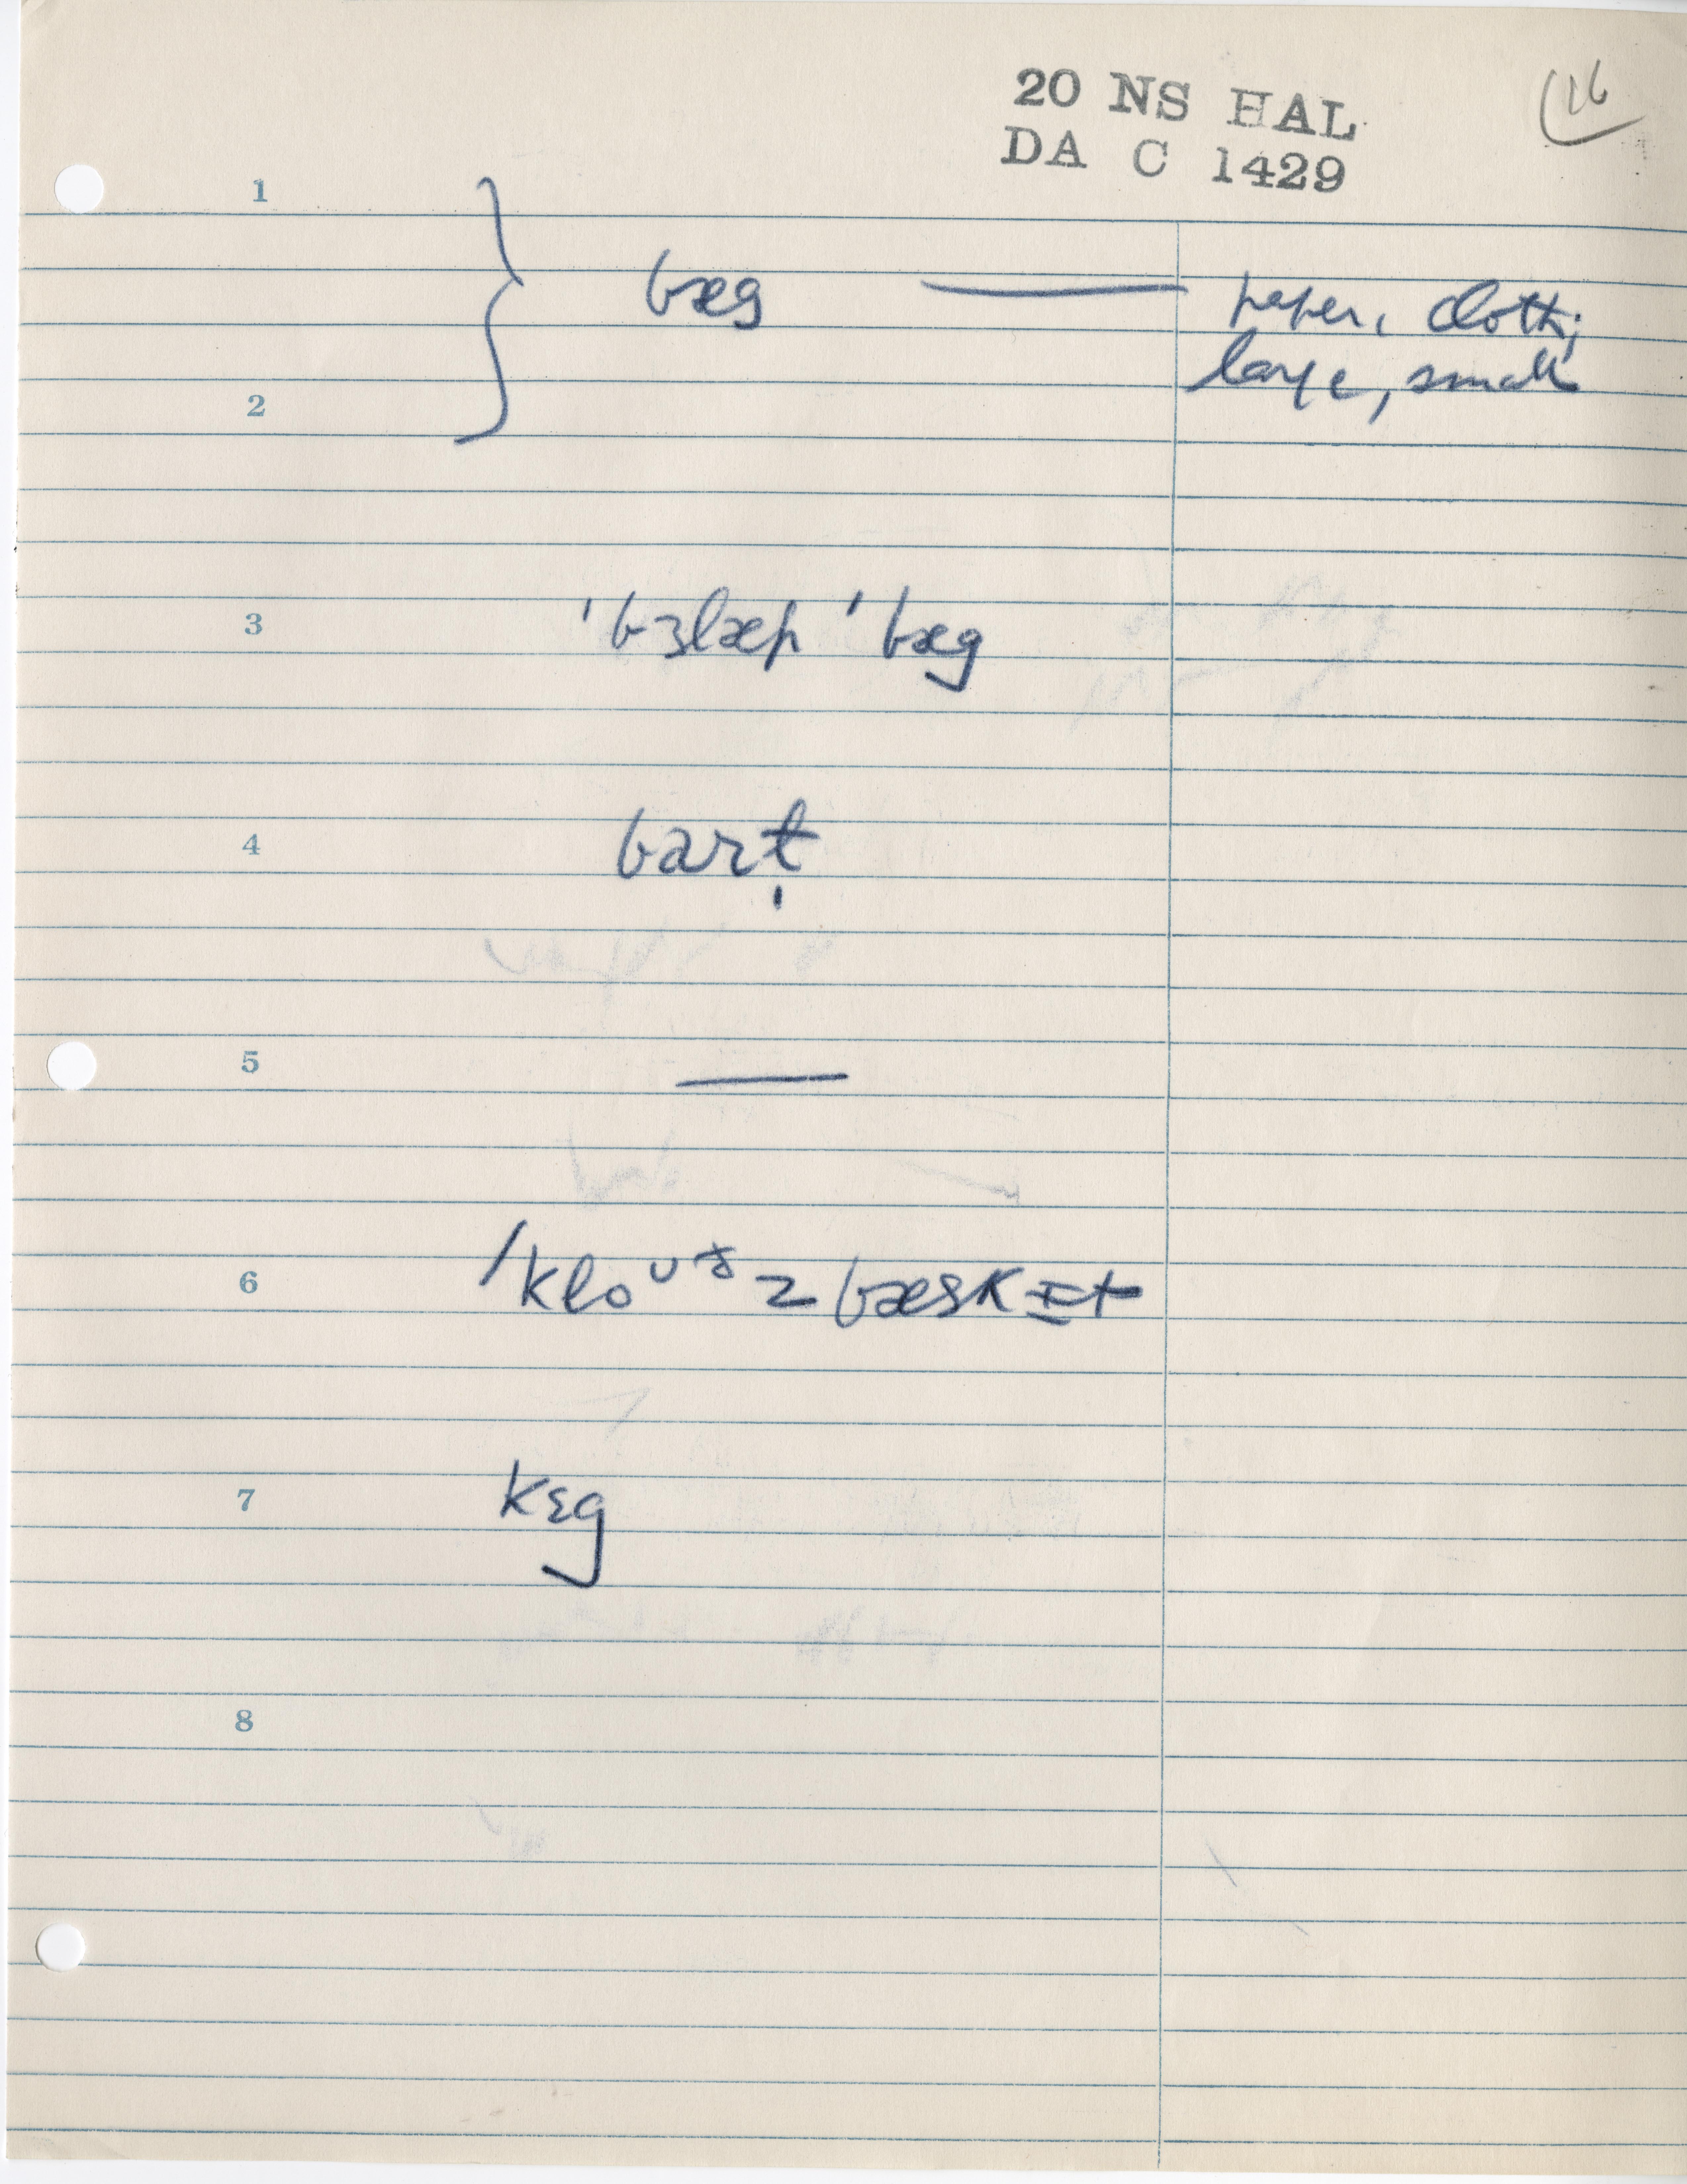 20 NS HAL
DA C 1429
16
1
} bæg — paper, cloth;
large, small
2
3 ˈbɜlæp ˈbæg
4 bart̩
5 —
6 ˈkloᶷᵟz bæskɪt
7 kɛg
8